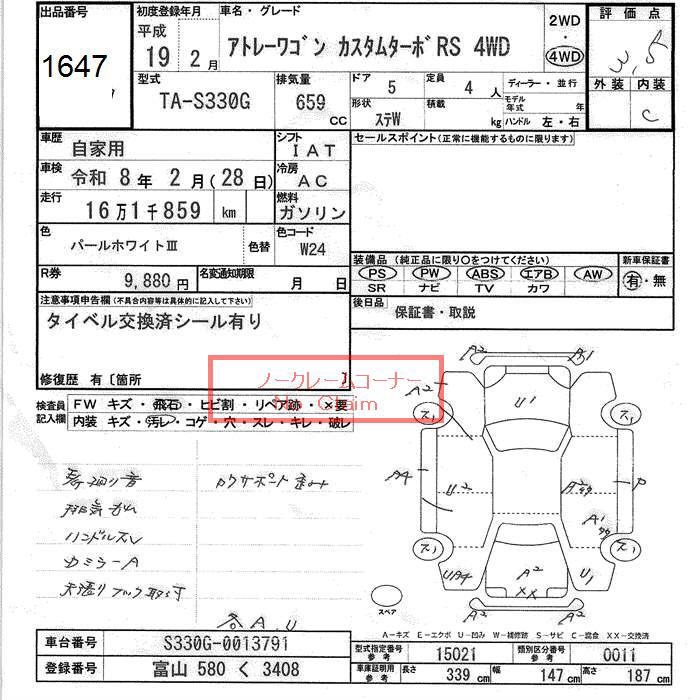 出品番号
1647
初度登録年月
平成
19年 2月
車名・グレード
アトレーワゴン カスタムターボRS 4WD
2WD
・
4WD
評価点
3.5
外装 内装
C
型式
TA-S330G
排気量
659
CC
ドア
5
定員
4 人
形状
ステW
積載
kg
ディーラー・並行
モデル年式 年
ハンドル 左・右
車歴
自家用
シフト
IAT
セールスポイント(正常に機能するものに限ります)
車検
令和 8年 2月(28日)
冷房
AC
走行
16万1千859 km
燃料
ガソリン
色
パールホワイトⅢ
色替
色コード
W24
装備品(純正品に限り○をつけてください)
新車保証書
PS PW ABS エアB AW
SR ナビ TV カワ
有・無
R券
9,880円
名変通知期限
月 日
後日品
保証書・取説
注意事項申告欄(不具合内容等は具体的に記入して下さい)
タイベル交換済シール有り
修復歴 有〔箇所 〕
ノークレームコーナー
No Claim
検査員記入欄
FW キズ・飛石・ヒビ割・リペア跡・×要
内装 キズ・汚レ・コゲ・穴・スレ・キレ・破レ
ハンドルスレ
カウサポート歪み
各A、U
A2
A1
A2
U1
ス1
ス1
A4
U2
P
A1
ス1
ス1
UA4
A2
XX
U1
A2
A2
スペア
A-キズ E-エクボ U-凹み W-補修跡 S-サビ C-腐食 XX-交換済
車台番号
S330G-0013791
登録番号
富山 580 く 3408
型式指定番号
参考
15021
類別区分番号
参考
0011
車庫証明用
参考
長さ
339 cm
幅
147 cm
高さ
187 cm